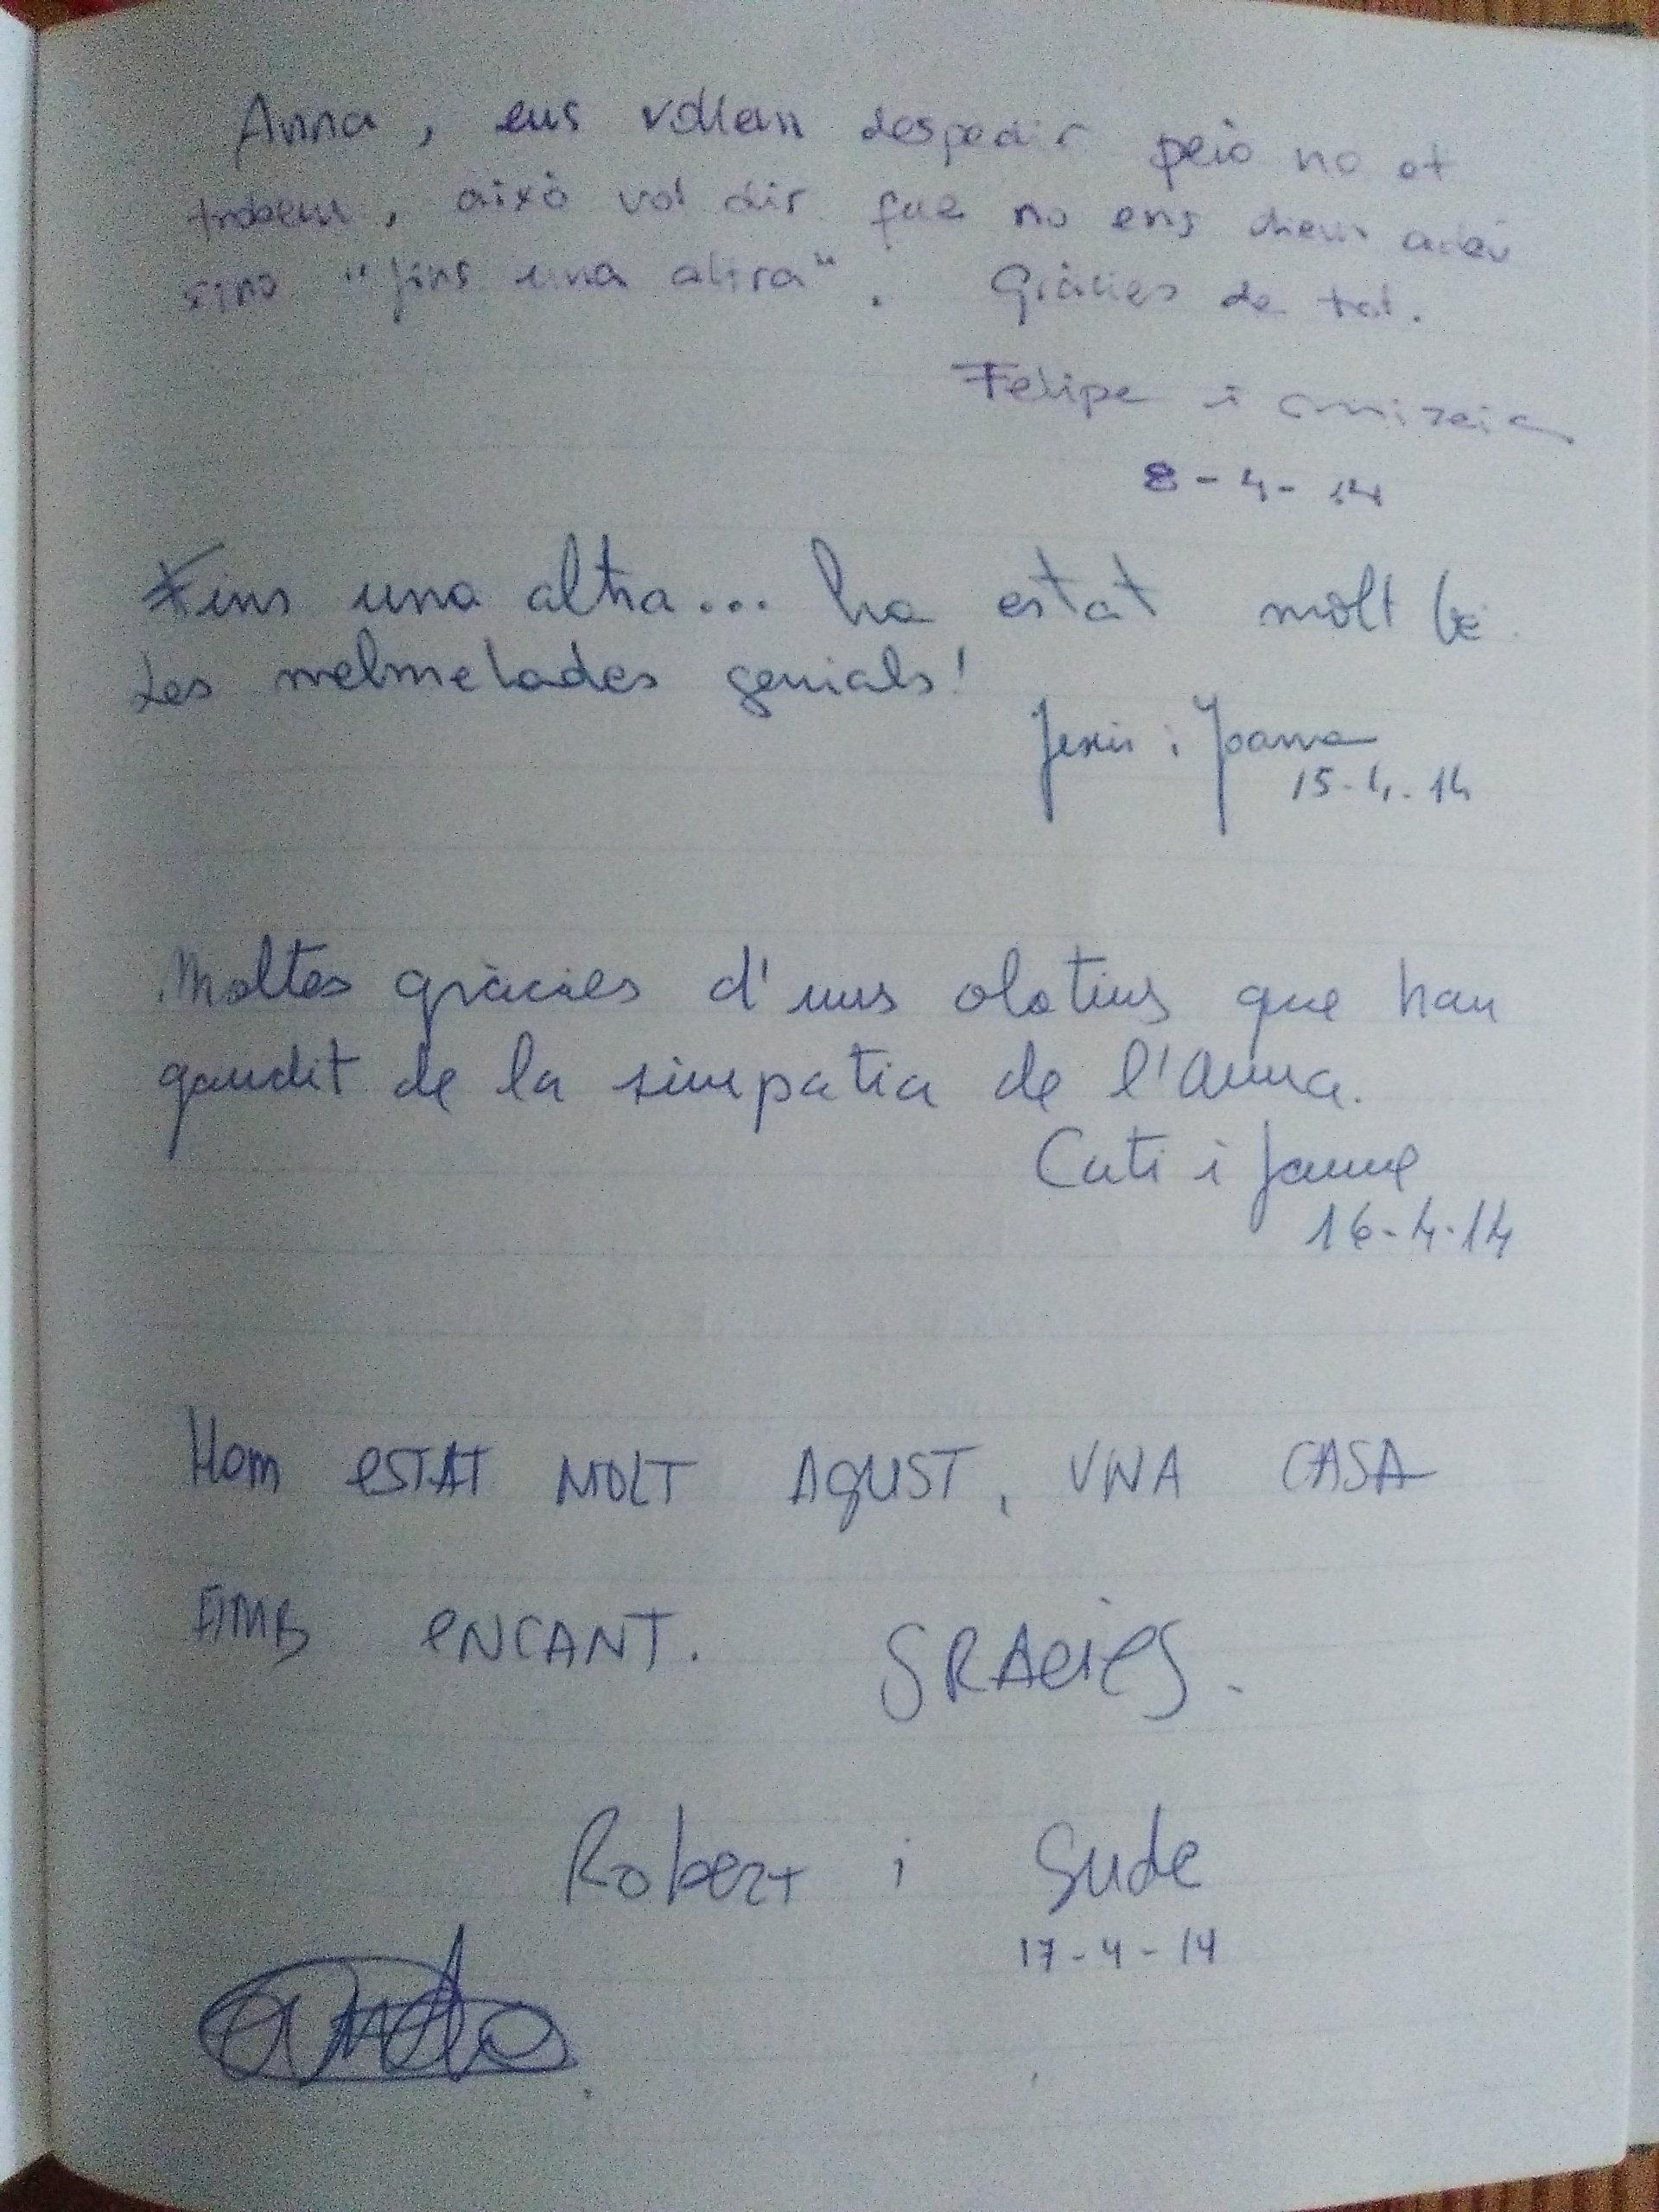 Anna, ens voliem despedir però no et
trobem, això vol dir que no ens diem adéu
sino "fins una altra". Gràcies de tot.
Felipe i Mireia
8-4-14
Fins una altra... ha estat molt bé
Les melmelades genials!
Jesús i Joana
15-4-14
Moltes gràcies d'uns olotins que han
gaudit de la simpatia de l'Anna.
Cati i Jaume
16-4-14
Hem ESTAT MOLT AGUST, UNA CASA
AMB ENCANT. GRACIES.
Robert i Gude
17-4-14